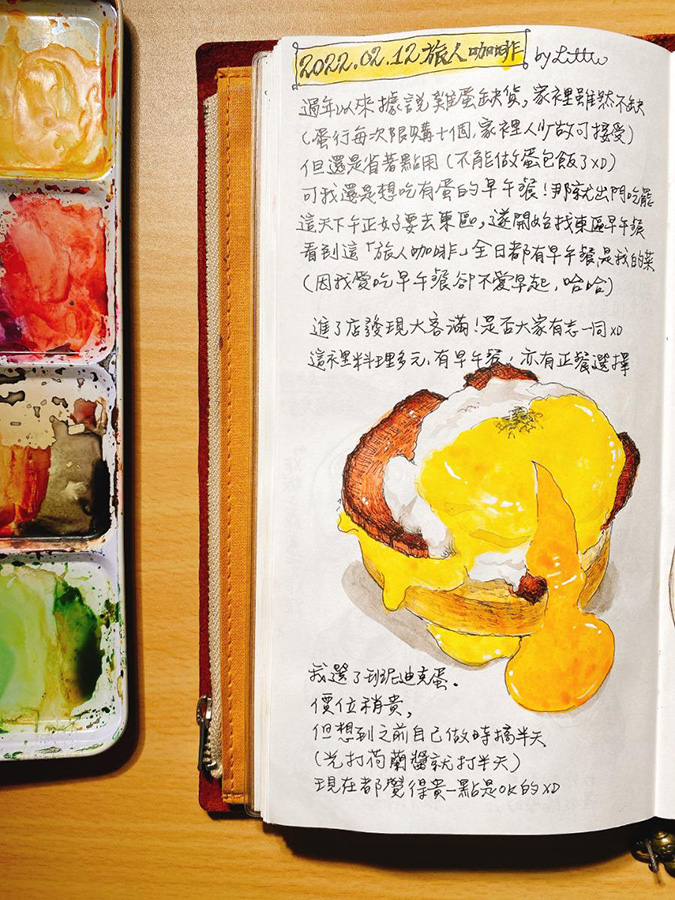 2022.02.12 旅人咖啡 by Little
過年以來據說雞蛋缺貨，家裡雖然不缺
(蛋行每次限購十個，家裡人少故可接受)
但還是省著點用 (不能做蛋包飯了XD)
可我還是想吃有蛋的早午餐！那就出門吃罷
這天下午正好要去東區，遂開始找東區早午餐
看到這「旅人咖啡」全日都有早午餐是我的菜
(因我愛吃早午餐卻不愛早起，哈哈)
進了店發現大客滿！是否大家有志一同XD
這裡料理多元，有早午餐，亦有正餐選擇
我選了班尼迪克蛋。
價位稍貴，
但想到之前自己做時搞半天
(光打荷蘭醬就打半天)
現在都覺得貴一點是OK的XD